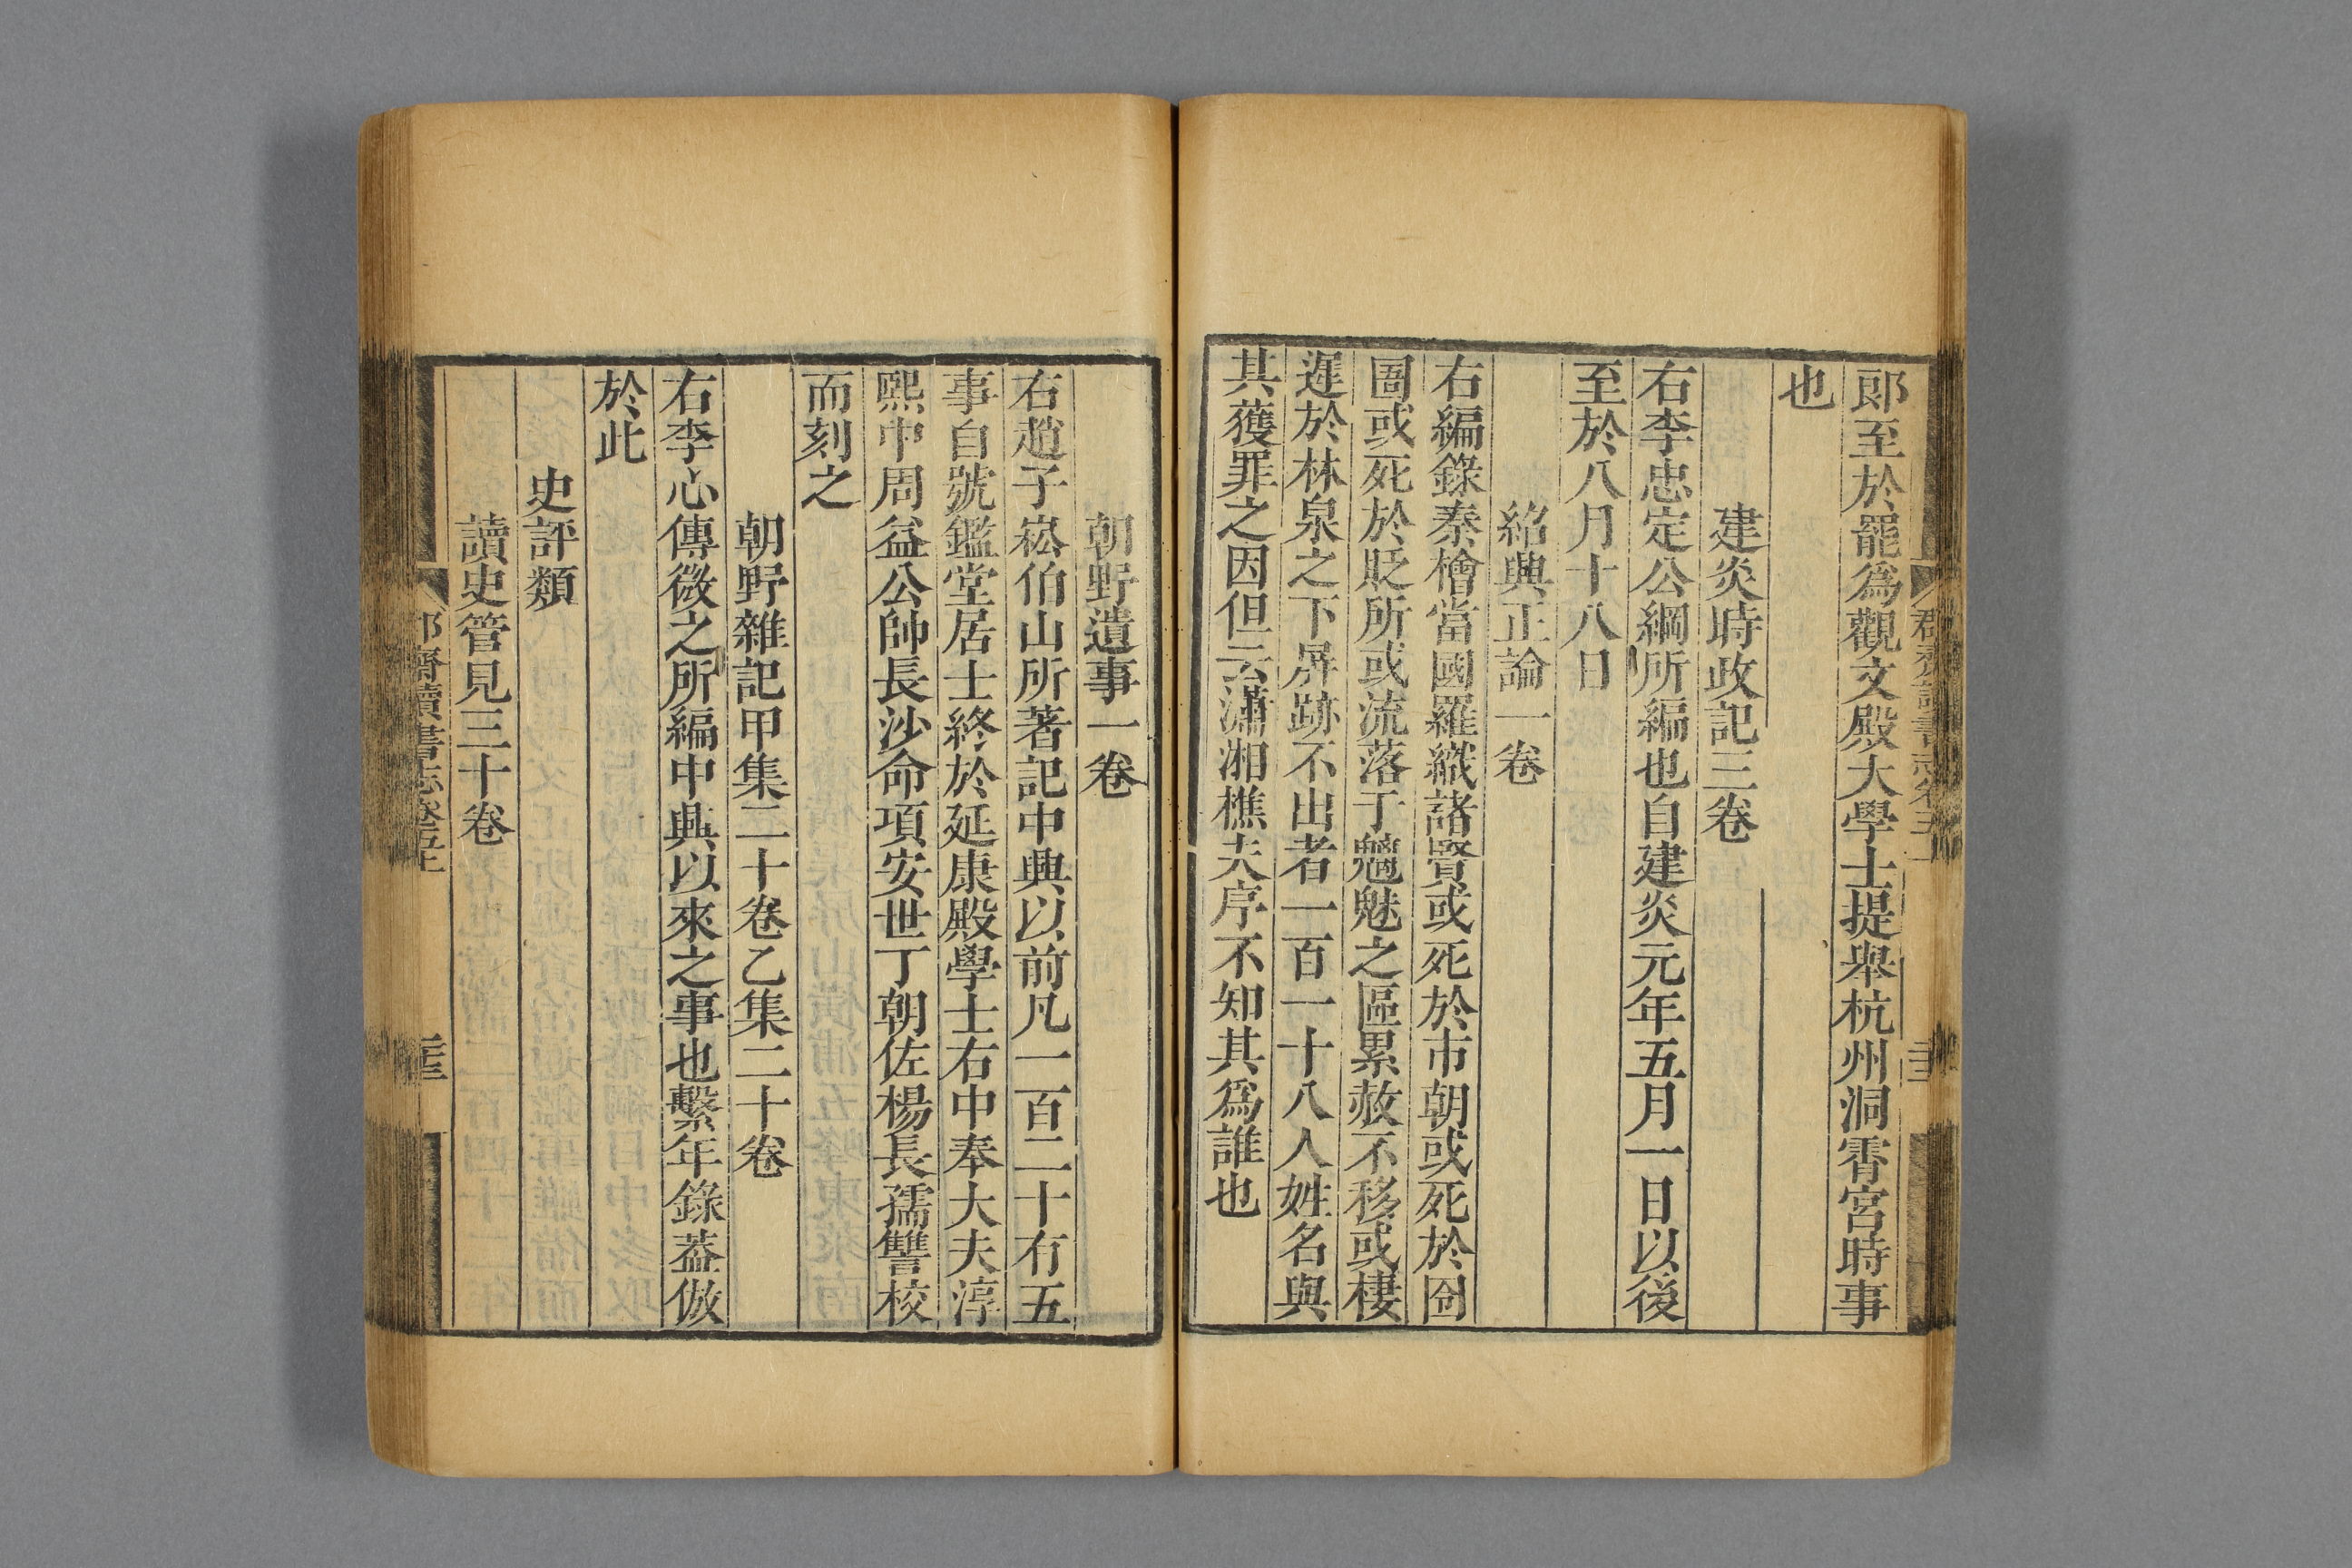 郎至於罷爲觀文殿大學士提舉杭州洞霄宮時事
也
建炎時政記三卷
右李忠定公綱所編也自建炎元年五月一日以後
至於八月十八日
紹興正論一卷
右編錄秦檜當國羅織諸賢或死於市朝或死於囹
圄或死於貶所或流落于魑魅之區累赦不移或棲
遲於林泉之下屏跡不出者一百一十八人姓名與
其獲罪之因但云瀟湘樵夫序不知其爲誰也
朝野遺事一卷
右趙子崧伯山所著記中興以前凡一百二十有五
事自號鑑堂居士終於延康殿學士右中奉大夫淳
熙中周益公帥長沙命項安世丁朝佐楊長孺讐校
而刻之
朝野雜記甲集二十卷乙集二十卷
右李心傳微之所編中興以來之事也繫年錄葢倣
於此
史評類
讀史管見三十卷